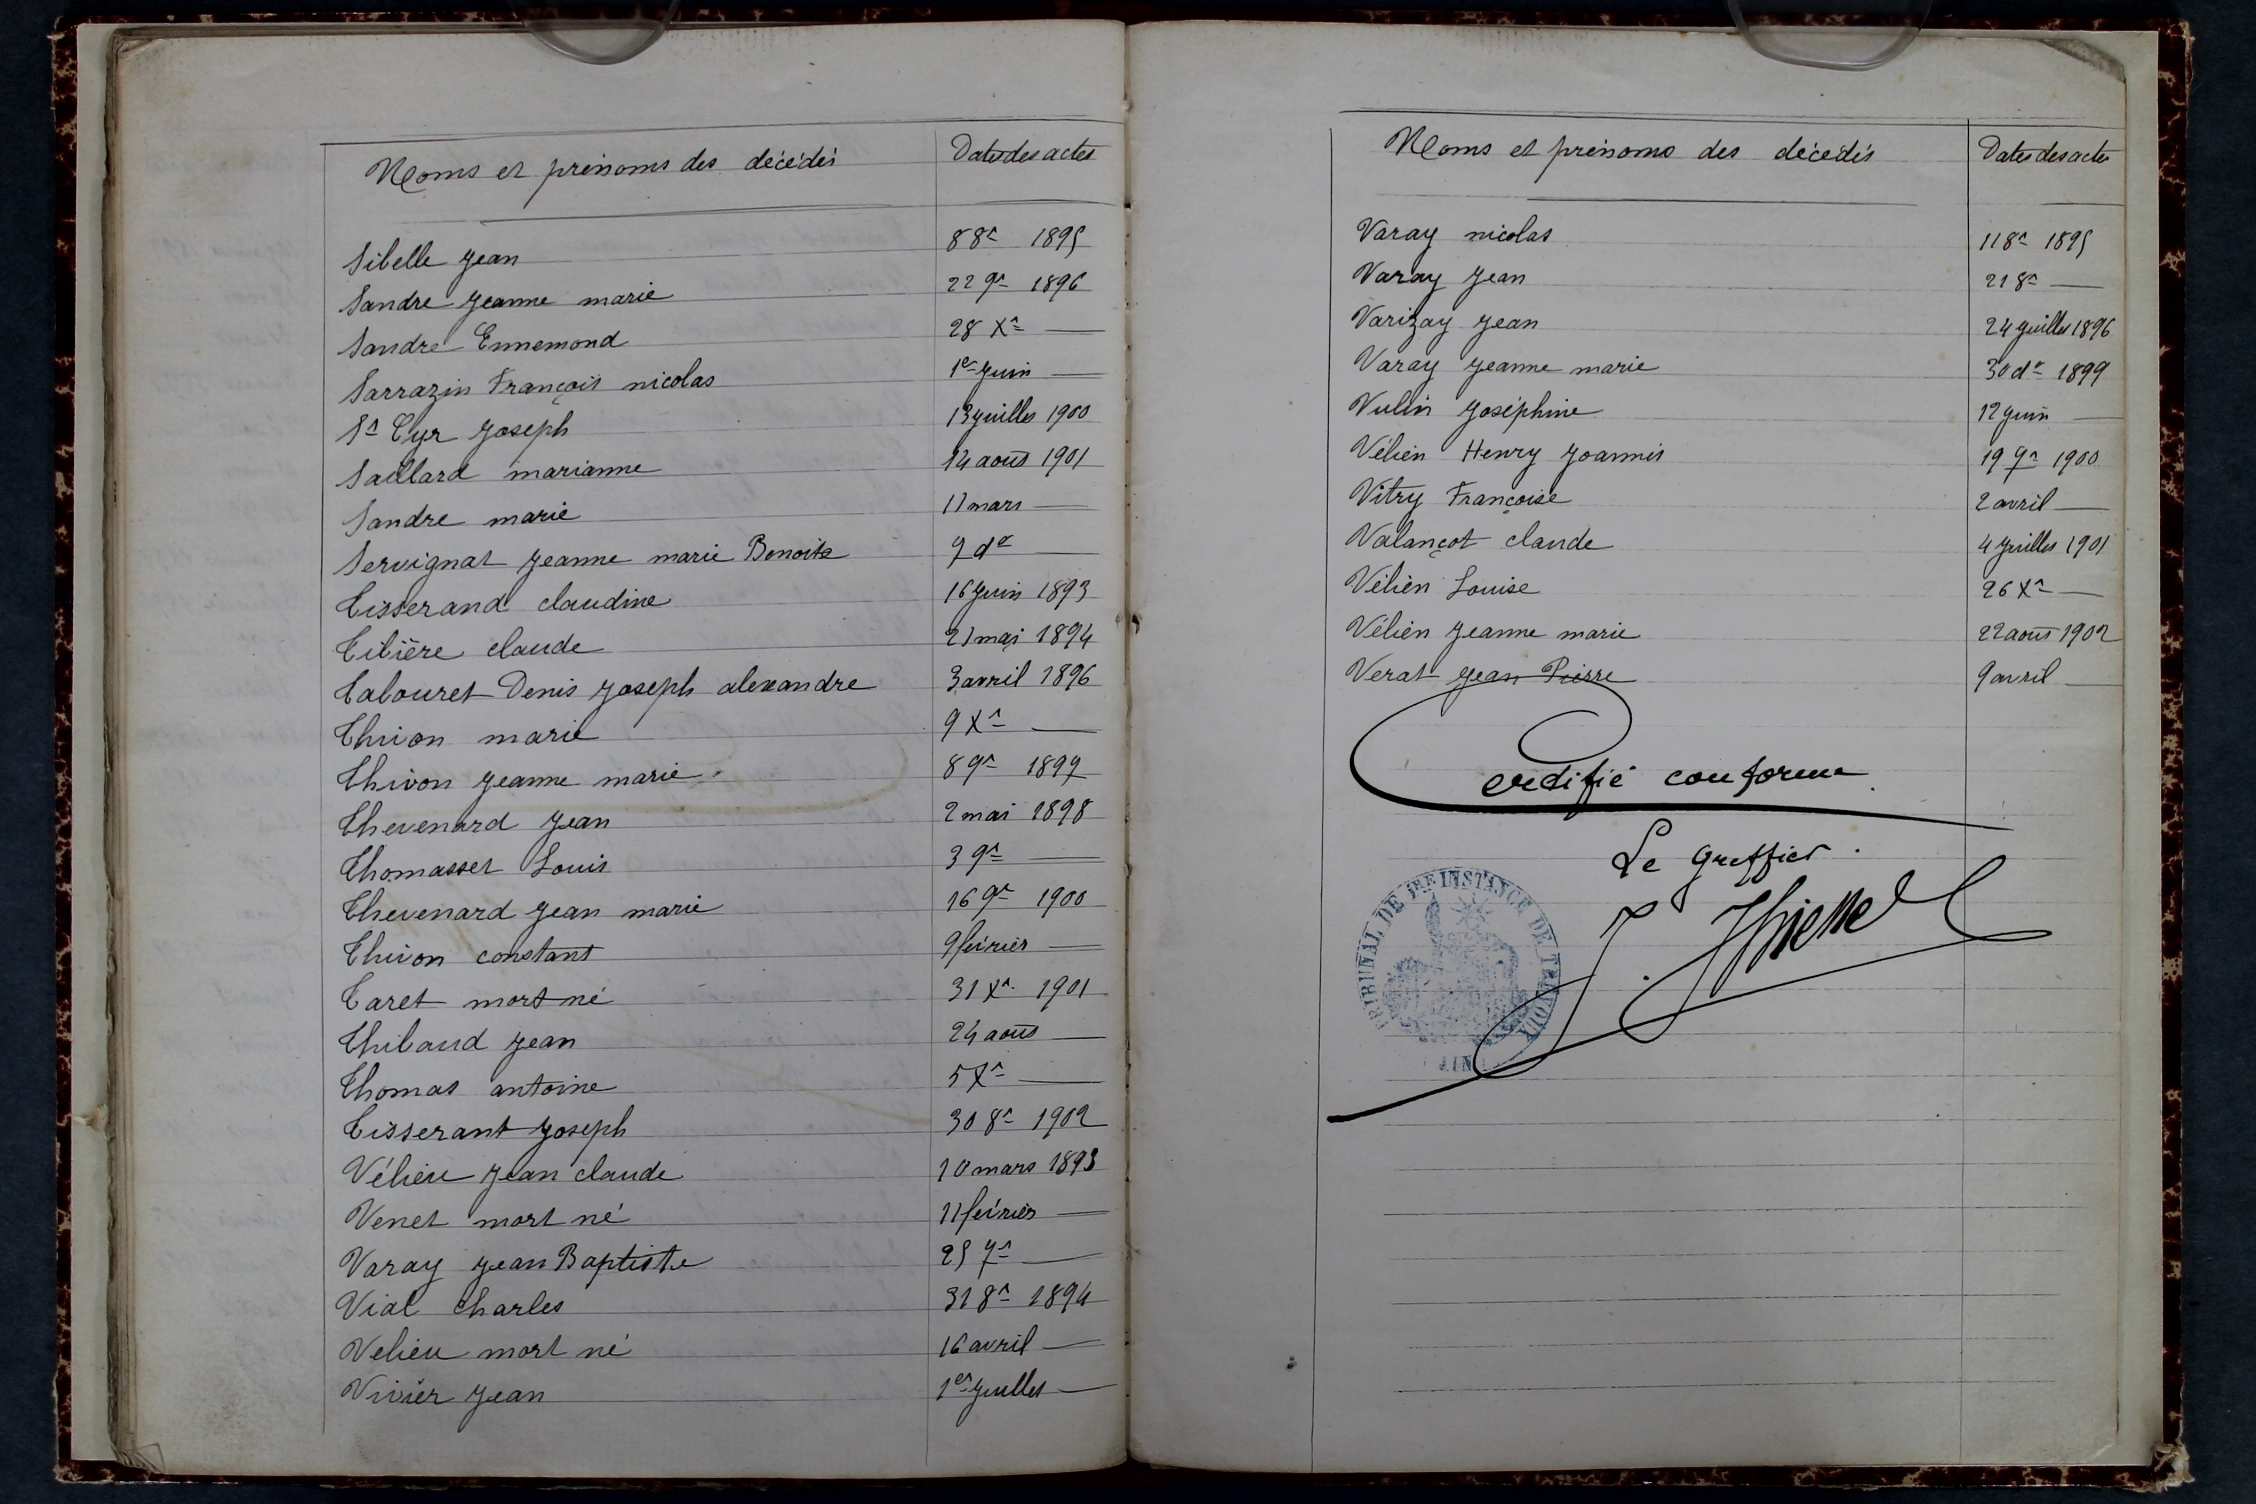 Noms et prénoms des décédés Dates des actes
Sibelle Jean 8 8re 1895
Sandre Jeanne marie 22 9re 1896
Sandre Ennemond 28 Xre —
Sarrazin François nicolas 1er Juin —
St Cyr Joseph 13 Juillet 1900
Saillard marianne 14 aout 1901
Sandre marie 11 mars —
Servignat Jeanne marie Benoite 7 do —
Tisserand claudine 16 Juin 1893
Tibière claude 21 mai 1894
Tabouret Denis Joseph alexandre 3 avril 1896
Thivon marie 9 Xre —
Thivon Jeanne marie 8 9re 1897
Thevenard Jean 2 mai 1898
Thomasset Louis 3 9re —
Thevenard Jean marie 16 9re 1900
Thivon constant 9 février —
Taret mort né 31 Xre 1901
Thibaud Jean 24 aout —
Thomas antoine 5 Xre —
Tisserant Joseph 30 8re 1902
Vélieu Jean claude 10 mars 1893
Venet mort né 11 février —
Varay Jean Baptiste 25 7re —
Vial charles 31 8re 1894
Velieu mort né 16 avril —
Vivier Jean 1er Juillet —
Noms et prénoms des décédés Dates des actes
Varay nicolas 11 8re 1895
Varay Jean 21 8re —
Varizay Jean 24 Juillet 1896
Varay Jeanne marie 30 do 1899
Vulin Joséphine 12 Juin —
Vélien Henry Joannis 19 7re 1900
Vitry Françoise 2 avril —
Valançot claude 4 Juillet 1901
Vélien Louise 26 Xre —
Vélien Jeanne marie 22 aout 1902
Verat Jean Pierre 9 avril —
Certifié conforme
Le Greffier.
TRIBUNAL DE 1RE INSTANCE DE TREVOUX
(AIN)